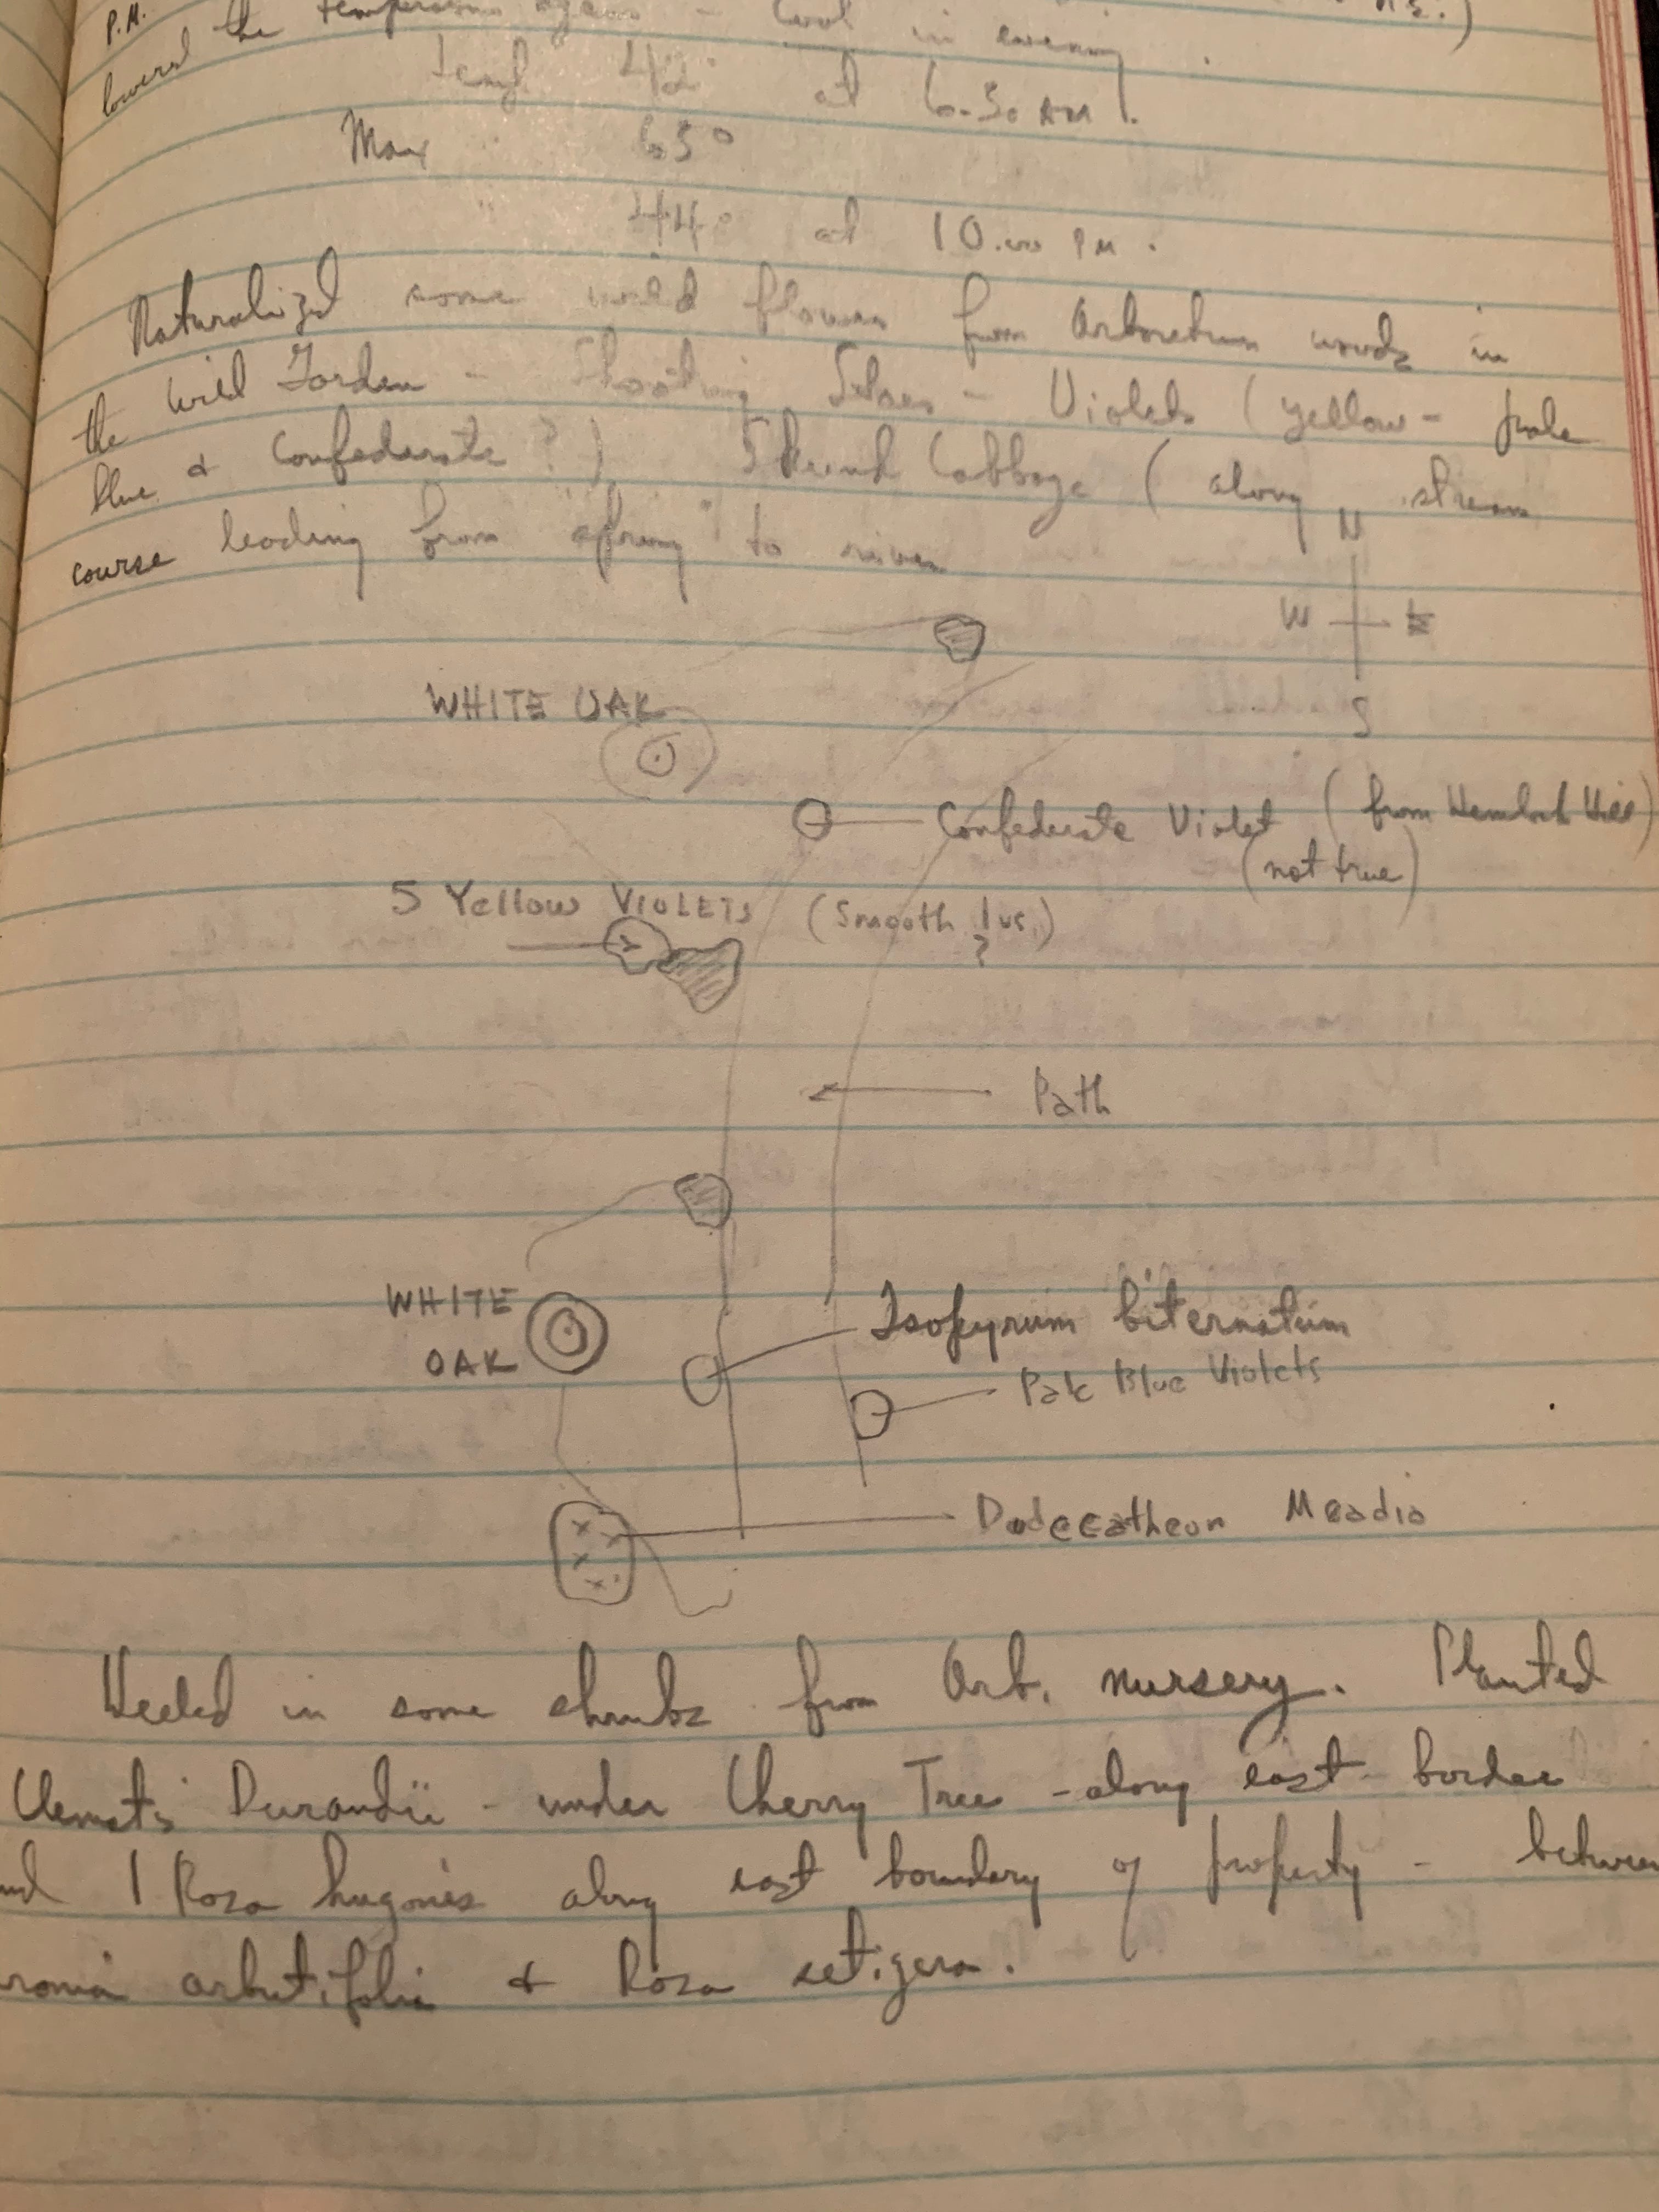 P.M.
lowered the temperature again - Cool in evening.
Temp 42° at 6.30 AM.
Max 63°
" 44° at 10.00 PM.
Naturalized some wild flowers from Arboretum woods in
the Wild Garden - Shooting Stars - Violets (yellow - pale
blue & Confederate?) Skunk Cabbage (along stream
course leading from "spring" to river
N
W E
S
WHITE OAK
Confederate Violet (from Hemlock Hill)
(not true)
5 Yellow VIOLETS (Smooth lvs.)
?
Path
WHITE
OAK
Isopyrum biternatum
Pale Blue Violets
Dodecatheon Meadia
Heeled in some shrubs from Arb. nursery. Planted
Clematis Durandii - under Cherry Tree - along east border
1 Rosa hugonis along east boundary of property - between
arbutifolia & Rosa setigera.